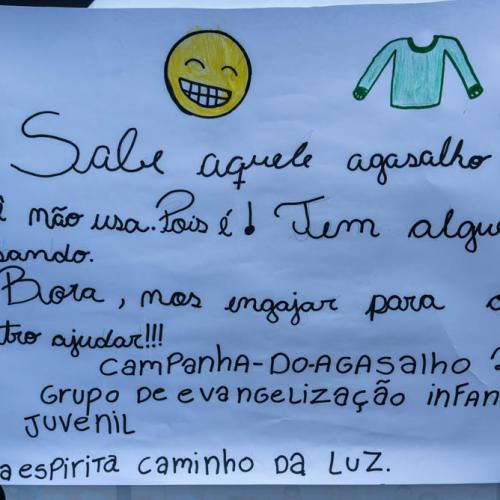 Sabe aquele agasalho
não usa. Pois é! Tem algue
sando.
Bora, nos engajar para o
tro ajudar!!!
CAMPANHA-DO-AGASALHO 2
GRUPO DE EVANGELIZAÇÃO INFAN
JUVENIL
A ESPIRITA CAMINHO DA LUZ.